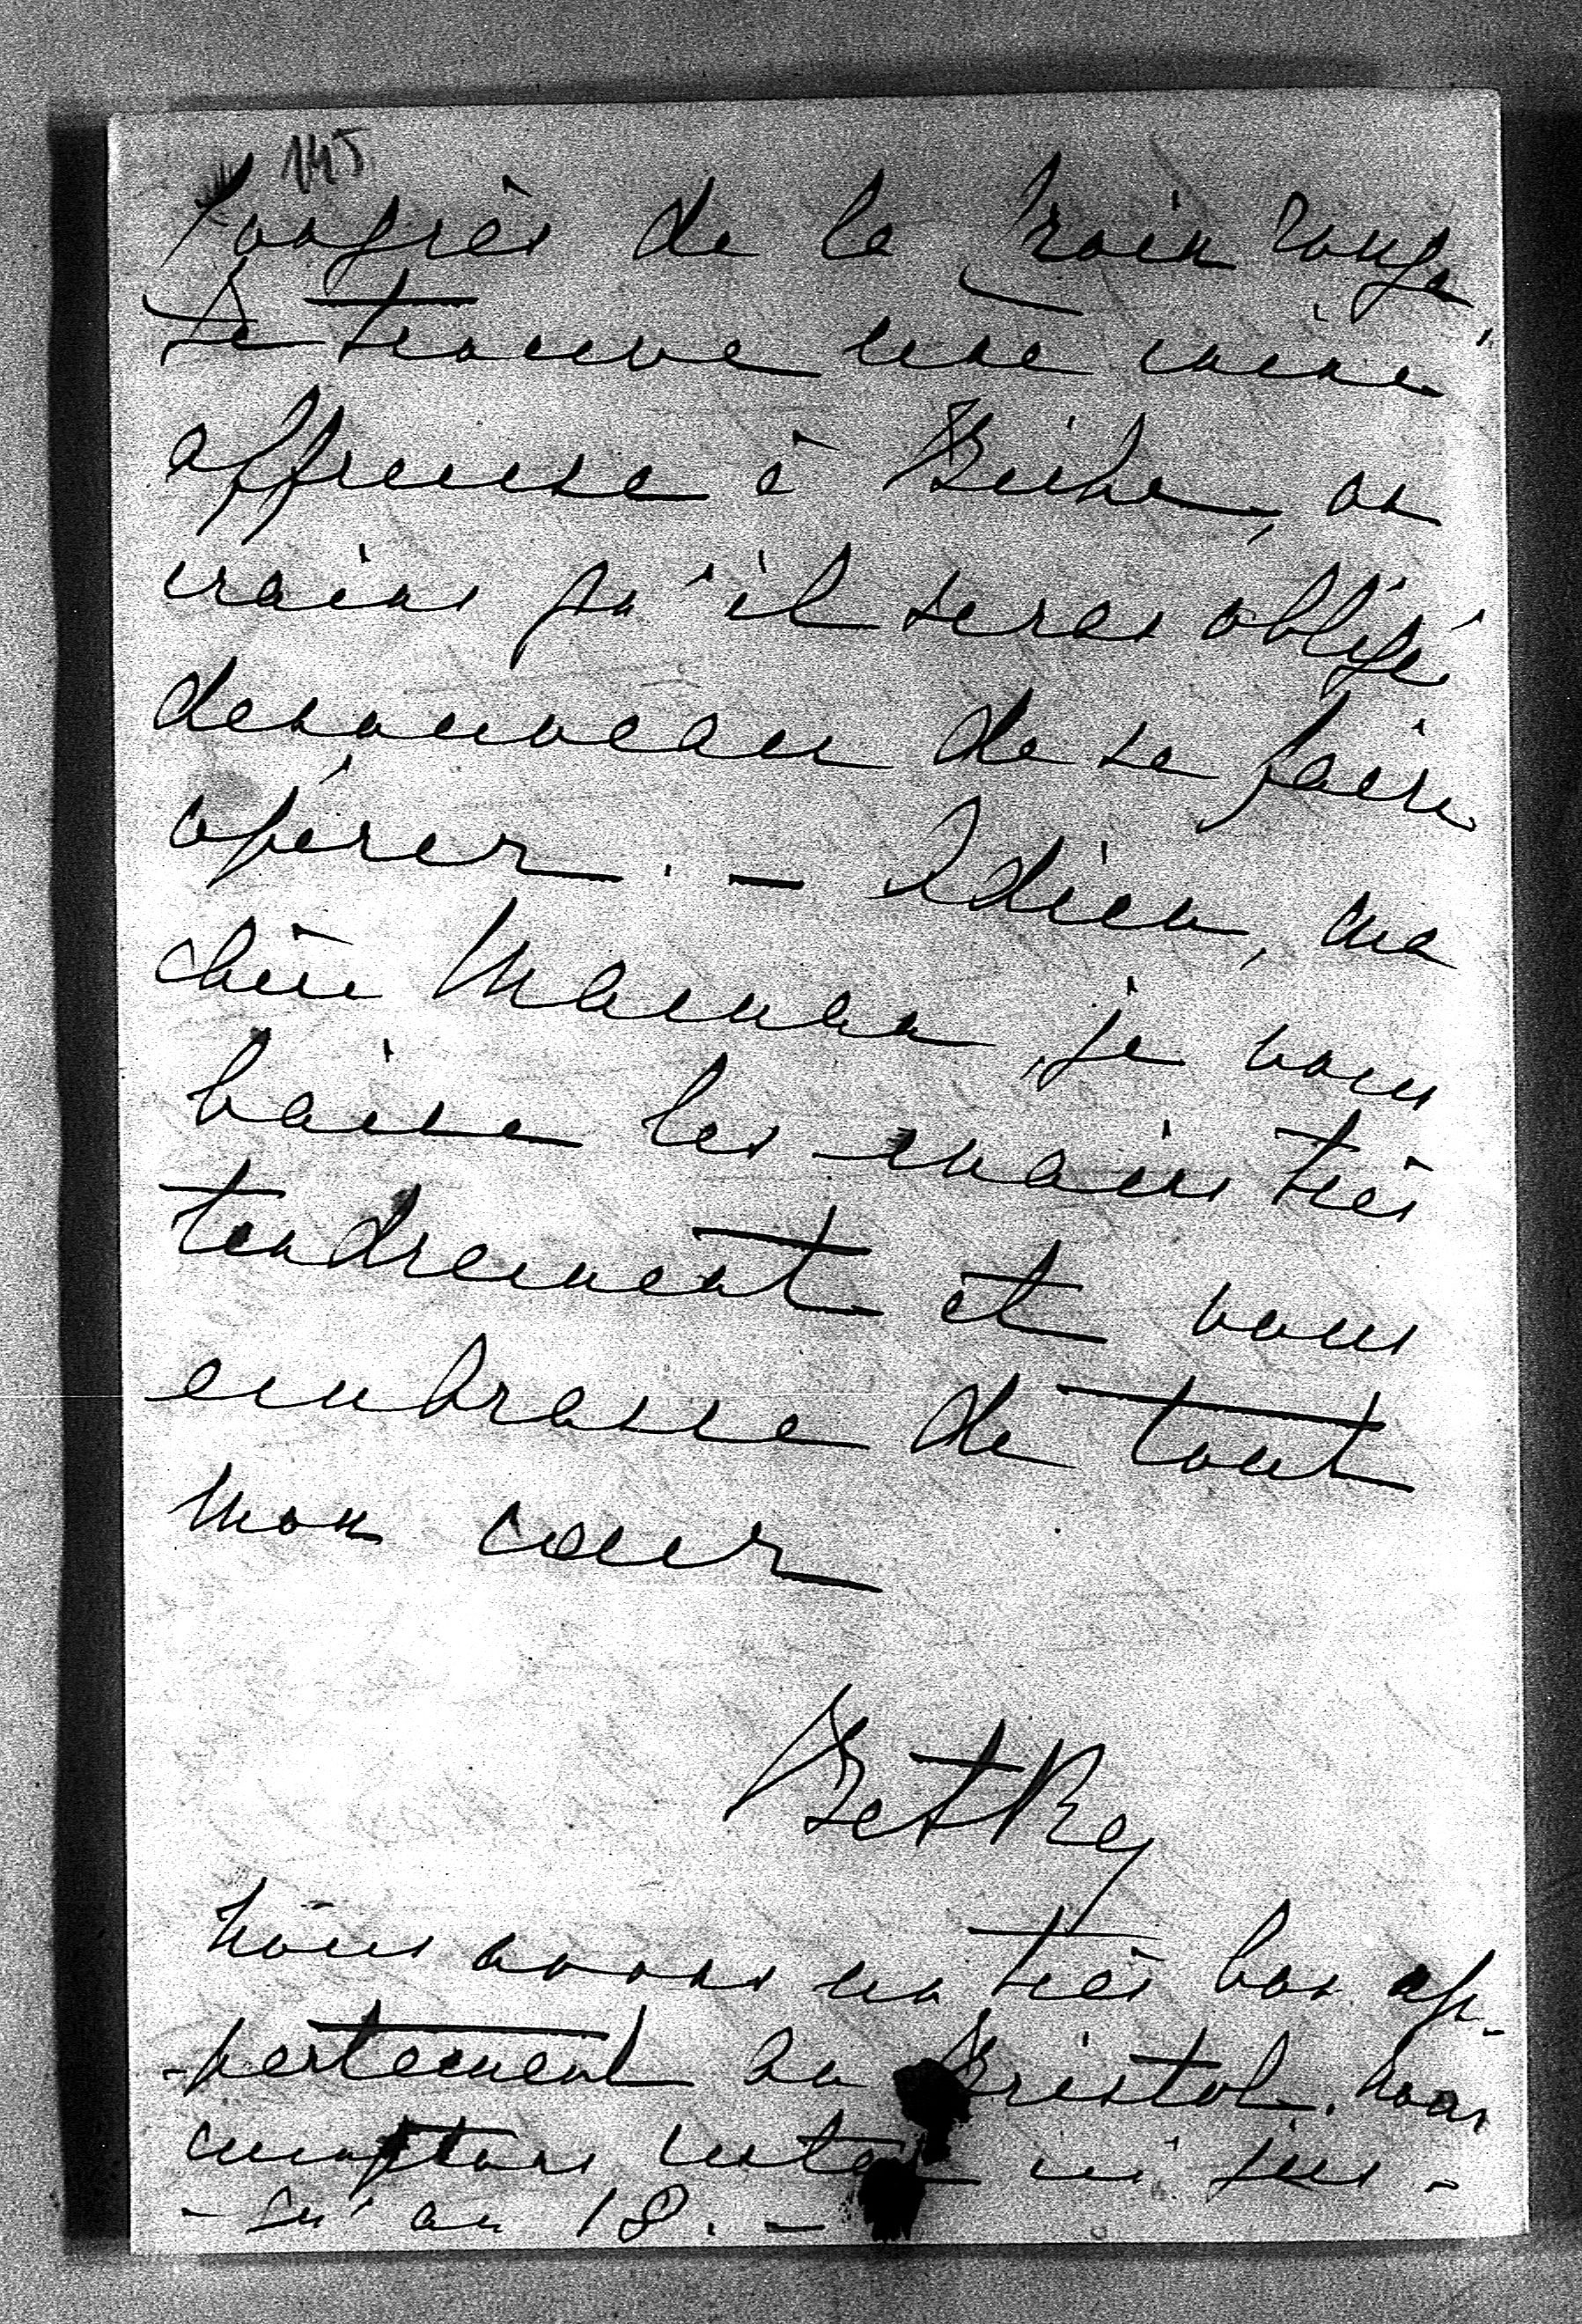 145
Congrès de la Croix Rouge,
Je trouve une mine
affreuse à Biske, on
crains qu'il seras obligé
denouveau de se faire
opérer. – Adieu, ma
chère Maman, je vous
baise les mains très
tendrement et vous
embrasse de tout
mon coeur
Betsy
Nous avons un très bon ap-
-partement au Bristol. Nous
comptons rester ici jus-
-qu'au 18. –